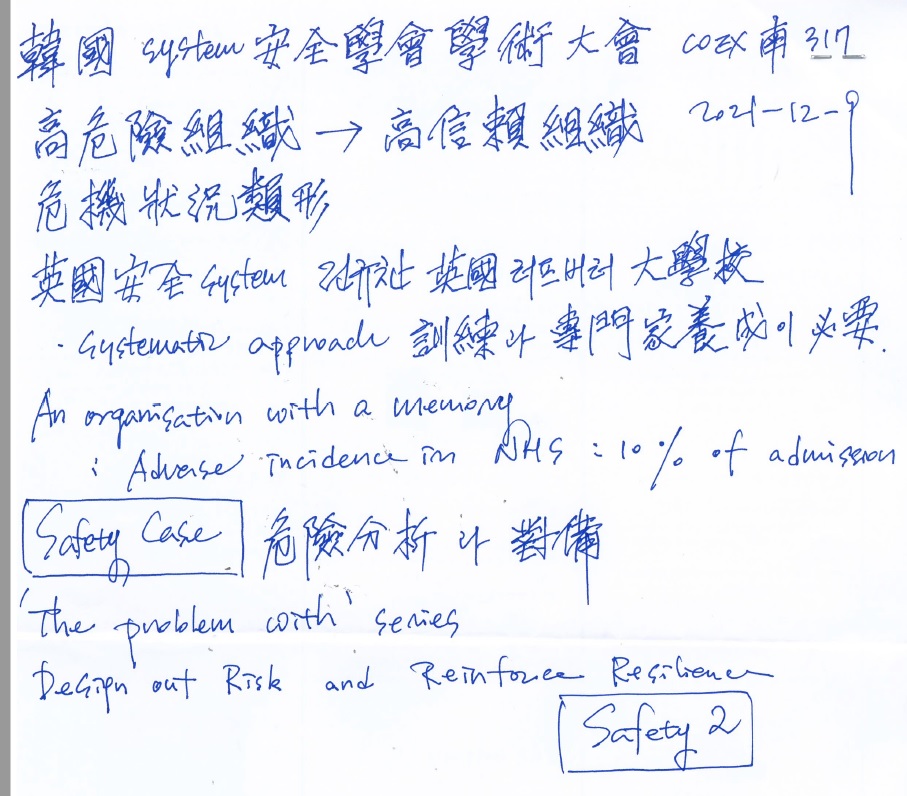 韓國 system 安全學會 學術大會 COEX 南 317
2021-12-9
高危險組織 → 高信賴組織
危機狀況類形
英國安全 system 전규찬 英國 러프버러 大學校
· systematic approach 訓練과 專門家養成이 必要.
An organisation with a memory
: Adverse incidence in NHS : 10% of admission
Safety Case 危險分析과 對備
'The problem with' series
Design out Risk and Reinforce Resilience
Safety 2